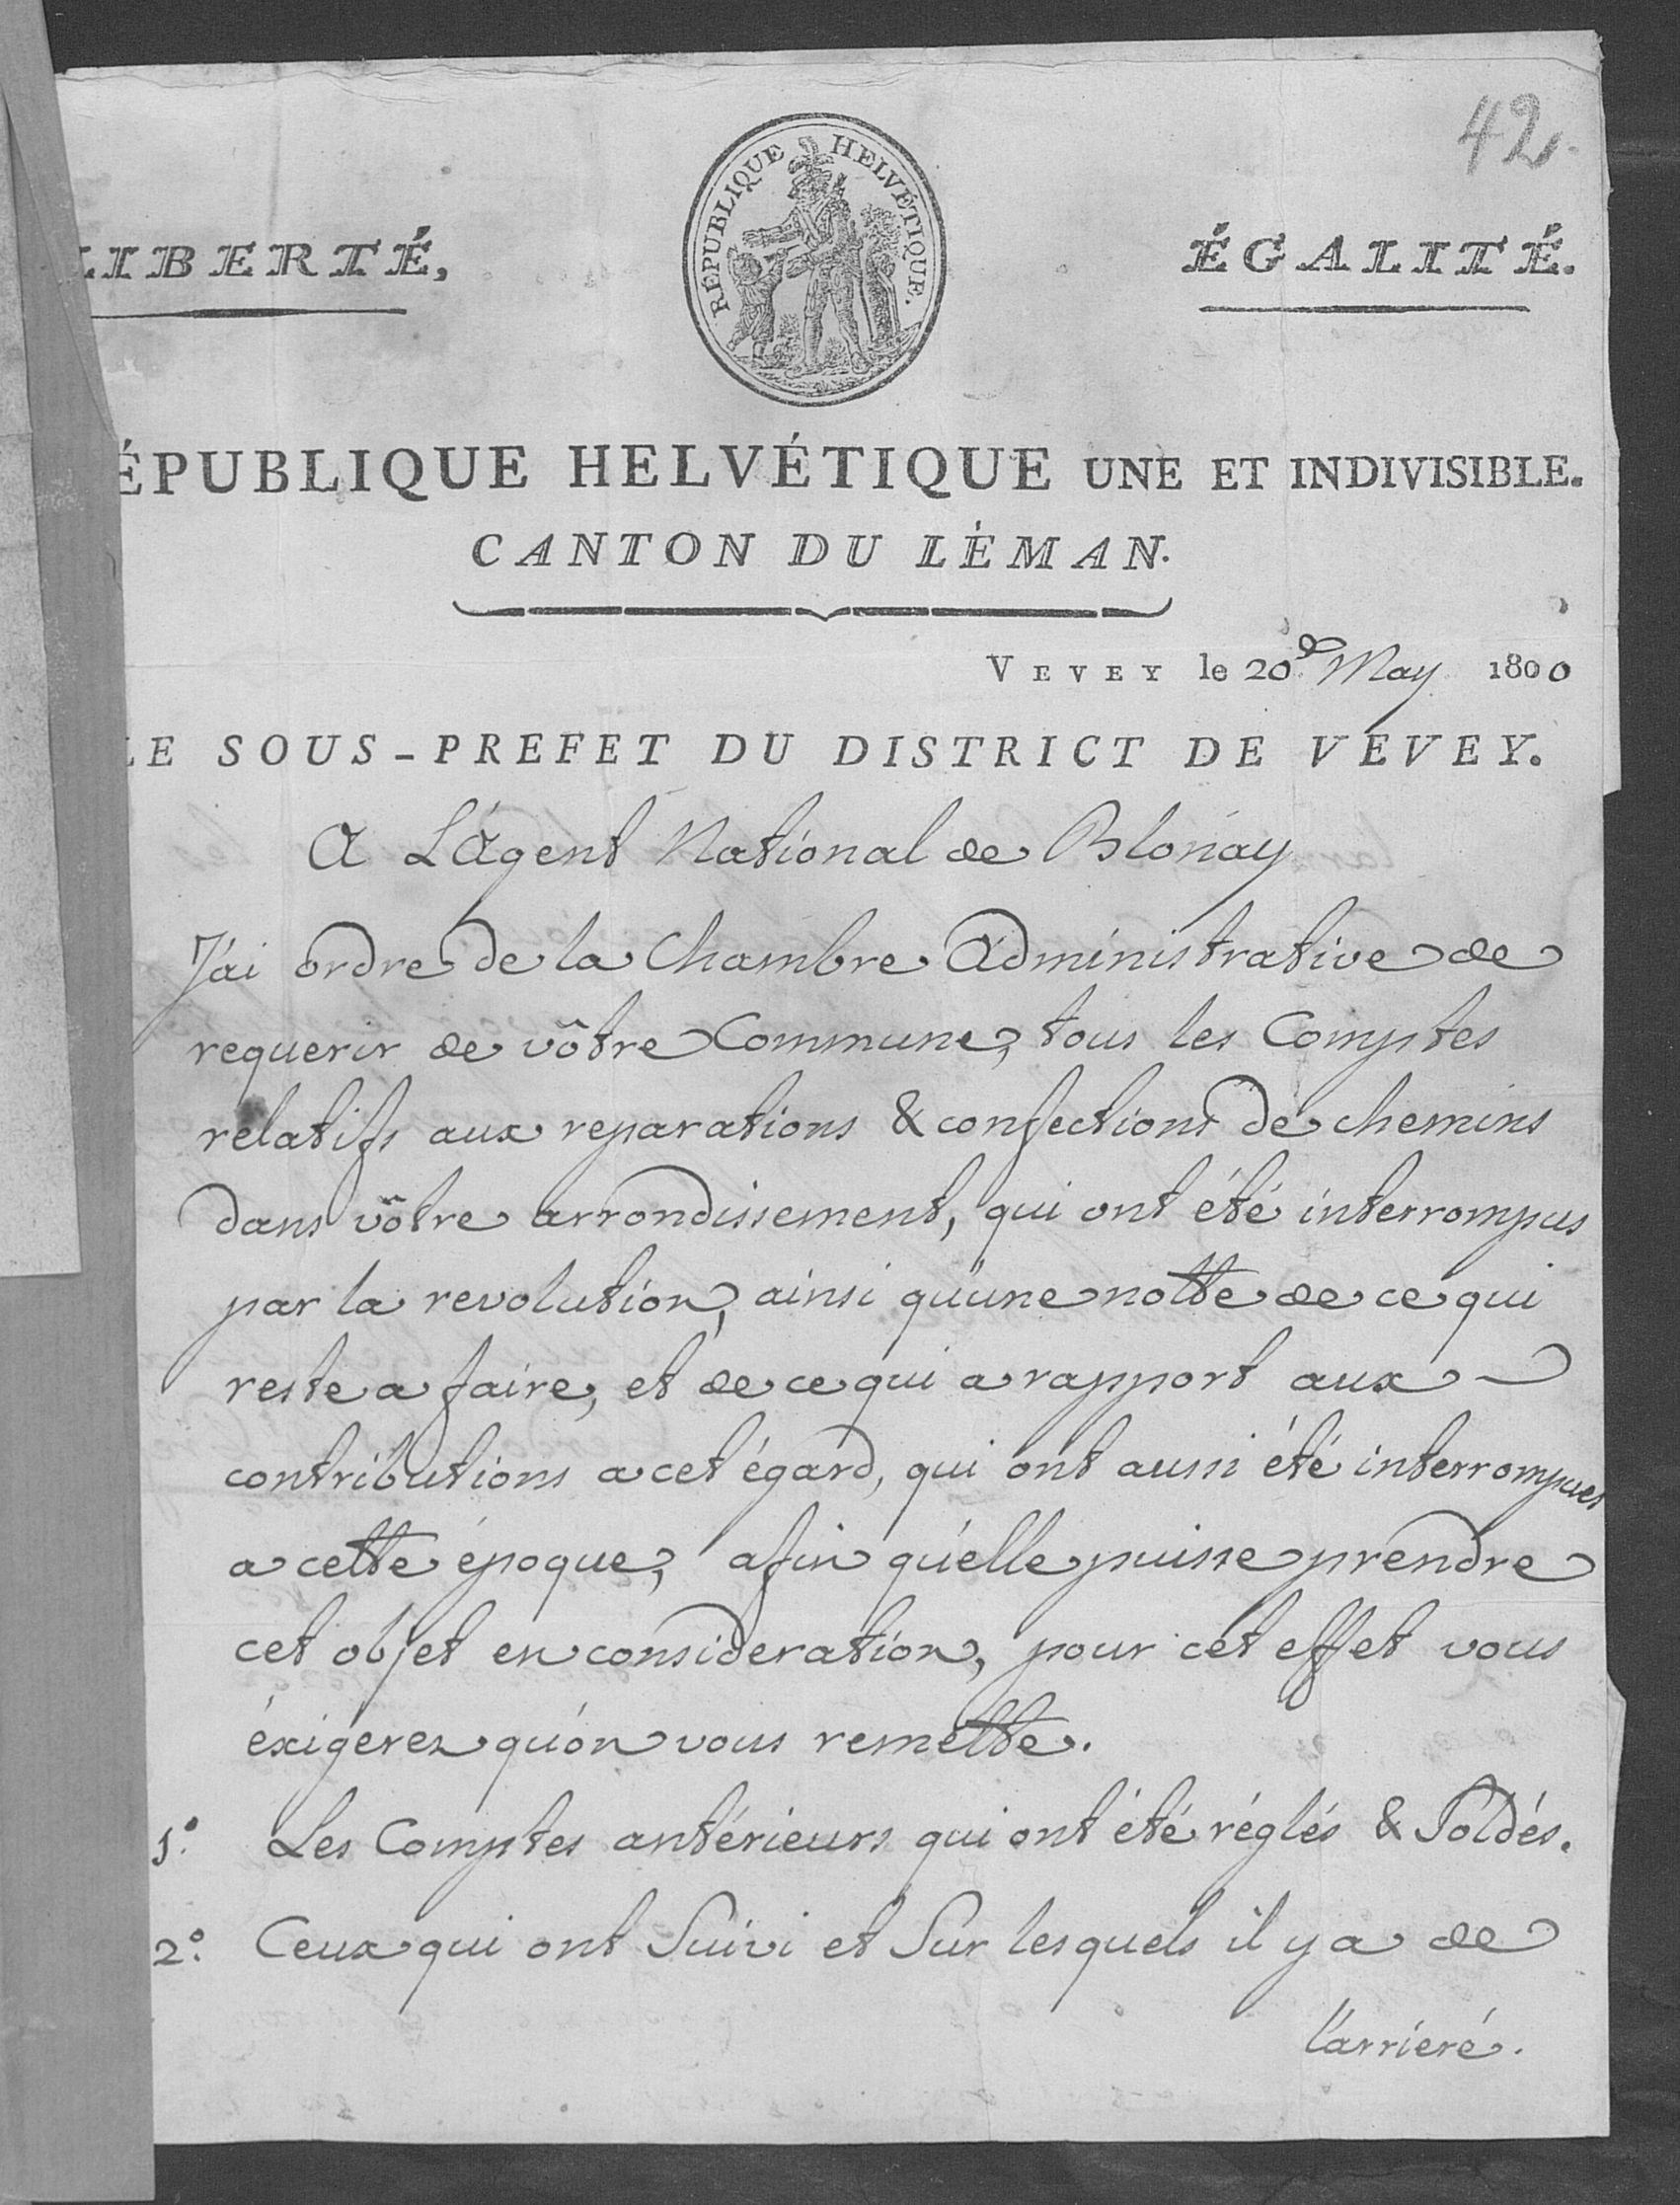 42.
RÉPUBLIQUE HELVÉTIQUE.
LIBERTÉ,
ÉGALITÉ.
ÉPUBLIQUE HELVÉTIQUE UNE ET INDIVISIBLE.
CANTON DU LÉMAN.
VEVEY le 20.e May 1800
LE SOUS-PREFET DU DISTRICT DE VEVEY.
A L'Agent National de Blonay
J'ai ordre de la Chambre Administrative de
requerir de vôtre Commune, tous les Comptes
relatifs aux reparations & confections de chemins
dans vôtre arrondissement, qui ont été interrompus
par la revolution, ainsi qu'une notte de ce qui
reste a faire, et de ce qui a rapport aux
contributions a cet égard, qui ont aussi été interrompues
a cette époque, afin qu'elle puisse prendre
cet objet en consideration, pour cet effet vous
éxigerez qu'on vous remette.
1.° Les Comptes antérieurs qui ont été réglés & Soldés.
2.° Ceux qui ont Suivi et Sur lesquels il y a de
l'arrieré.